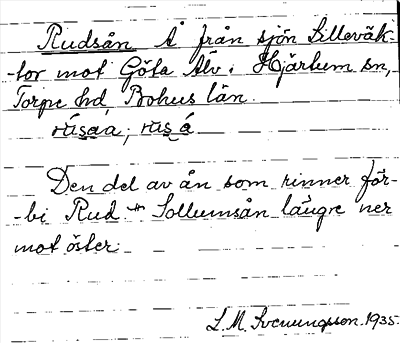 Rudsån Å från sjön Lilleväk-
-tor mot Göta Älv. Hjärtum sn,
Torpe hd, Bohus län.
rüs̱a̱a, rüs̱ á
Den del av ån som rinner för-
-bi Rud + Sollumsån längre ner
mot öster.
L.M. Svenungsson. 1935.